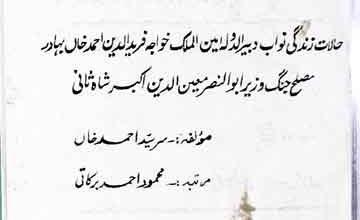 حالات زندگی نواب دبیر الدولہ امین الملک خواجہ فرید الدین احمد خاں بہادر
مصلح جنگ وزیر ابو النصر معین الدین اکبر شاہ ثانی
مؤلفہ :- سر سیّد احمد خاں
مرتبہ :- محمود احمد برکاتی